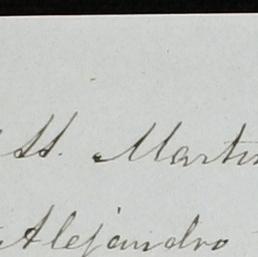 H. Martin
Alejandro